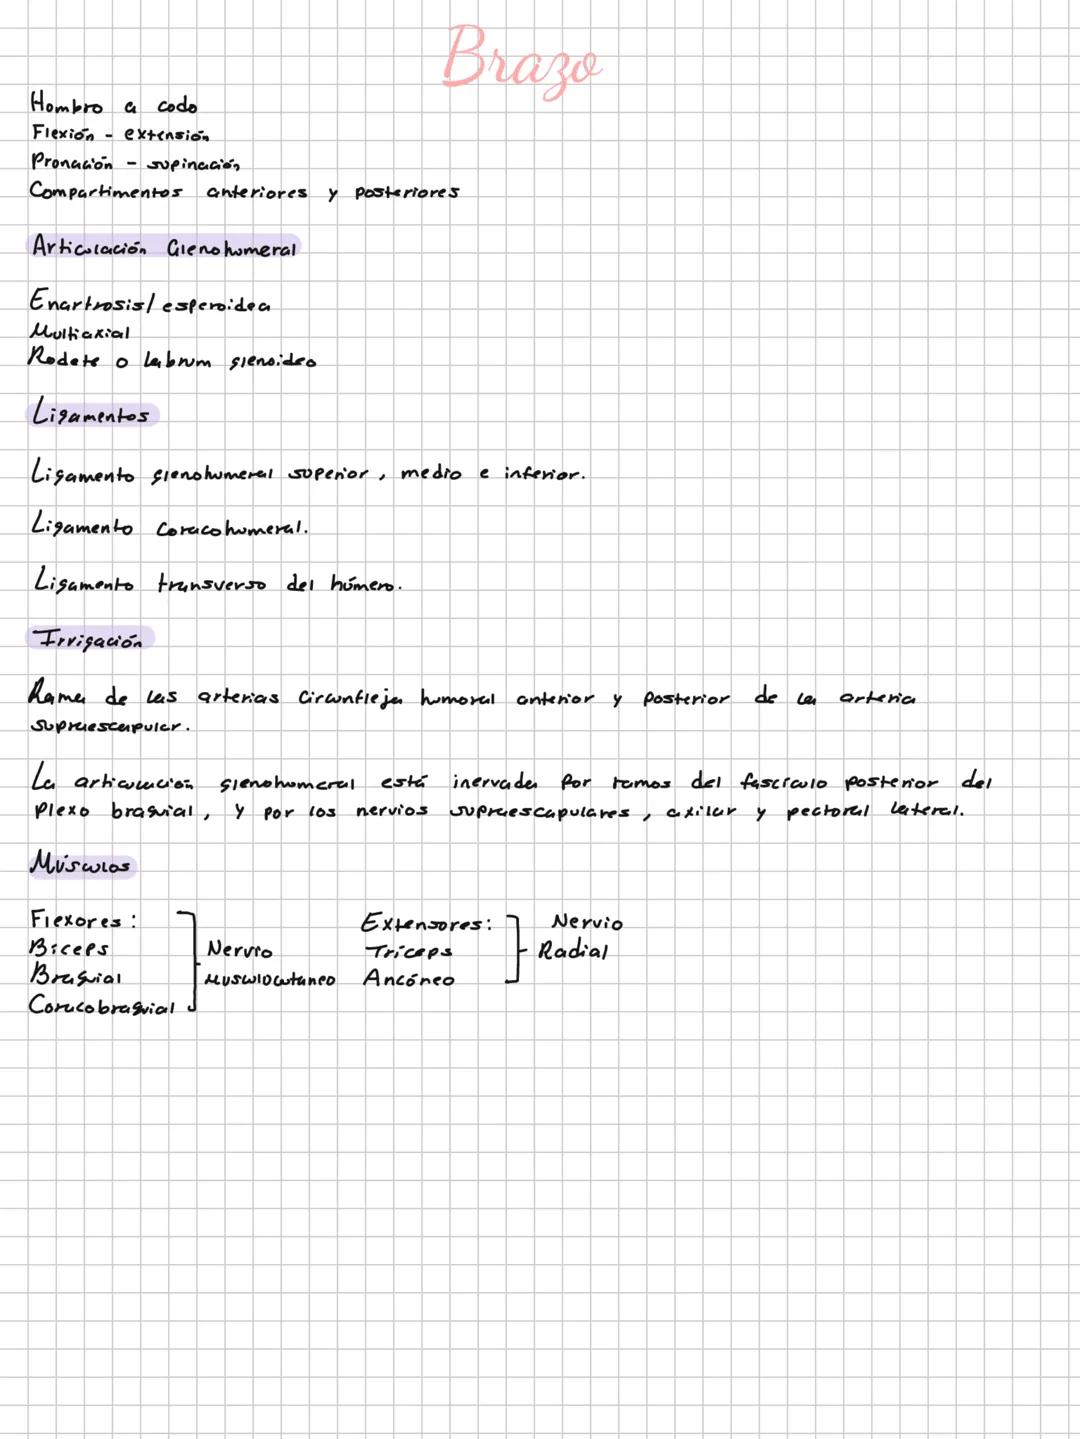 Brazo
Hombro a codo
Flexión - extensión
Pronación - supinación
Compartimentos anteriores y posteriores
Articulación Glenohumeral
Enartrosis/ esperoidea
Multiaxial
Rodete o labrum glenoideo
Ligamentos
Ligamento glenohumeral superior, medio e inferior.
Ligamento coracohumeral.
Ligamento transverso del húmero.
Irrigación
Rama de las arterias circunfleja humoral anterior y posterior de la arteria
supraescapular.
La articulación glenohumeral está inervada por ramos del fascículo posterior del
plexo braquial, y por los nervios supraescapulares, axilar y pectoral lateral.
Músculos
Flexores: Extensores: Nervio
Bíceps Nervio Tríceps Radial
Braquial Musculocutaneo Ancóneo
Coracobraquial